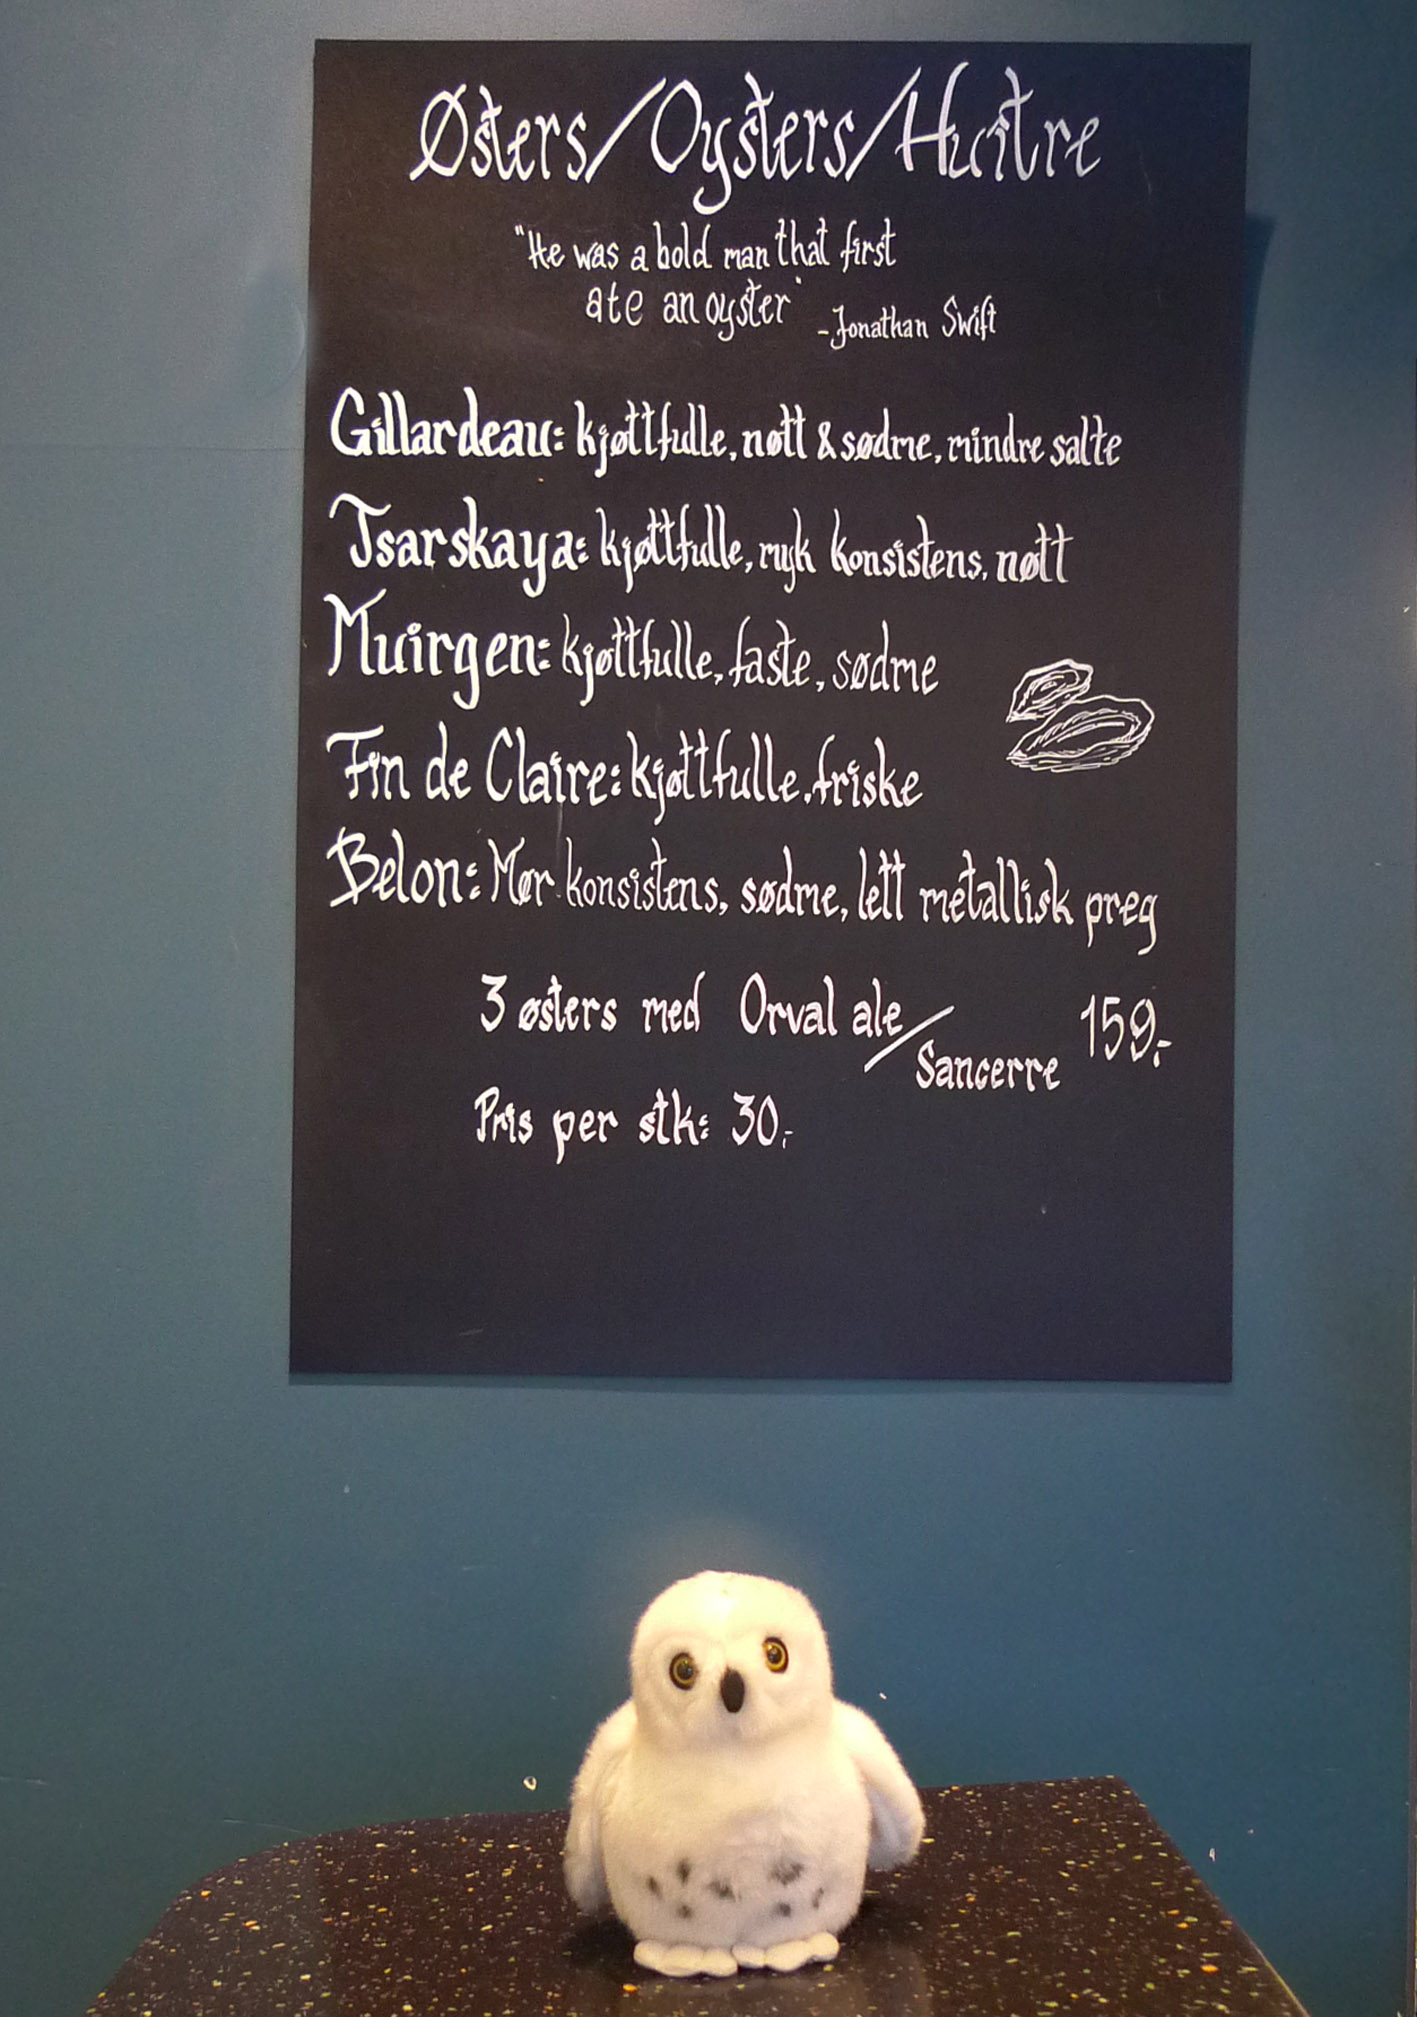 Østers/Oysters/Huitre
"He was a bold man that first
ate an oyster" -Jonathan Swift
Gillardeau: kjøttfulle, nøtt & sødme, mindre salte
Tsarskaya: kjøttfulle, myk konsistens, nøtt
Muirgen: kjøttfulle, faste, sødme
Fin de Claire: kjøttfulle, friske
Belon: Mør konsistens, sødme, lett metallisk preg
3 østers med Orval ale/Sancerre 159,-
Pris per stk: 30,-